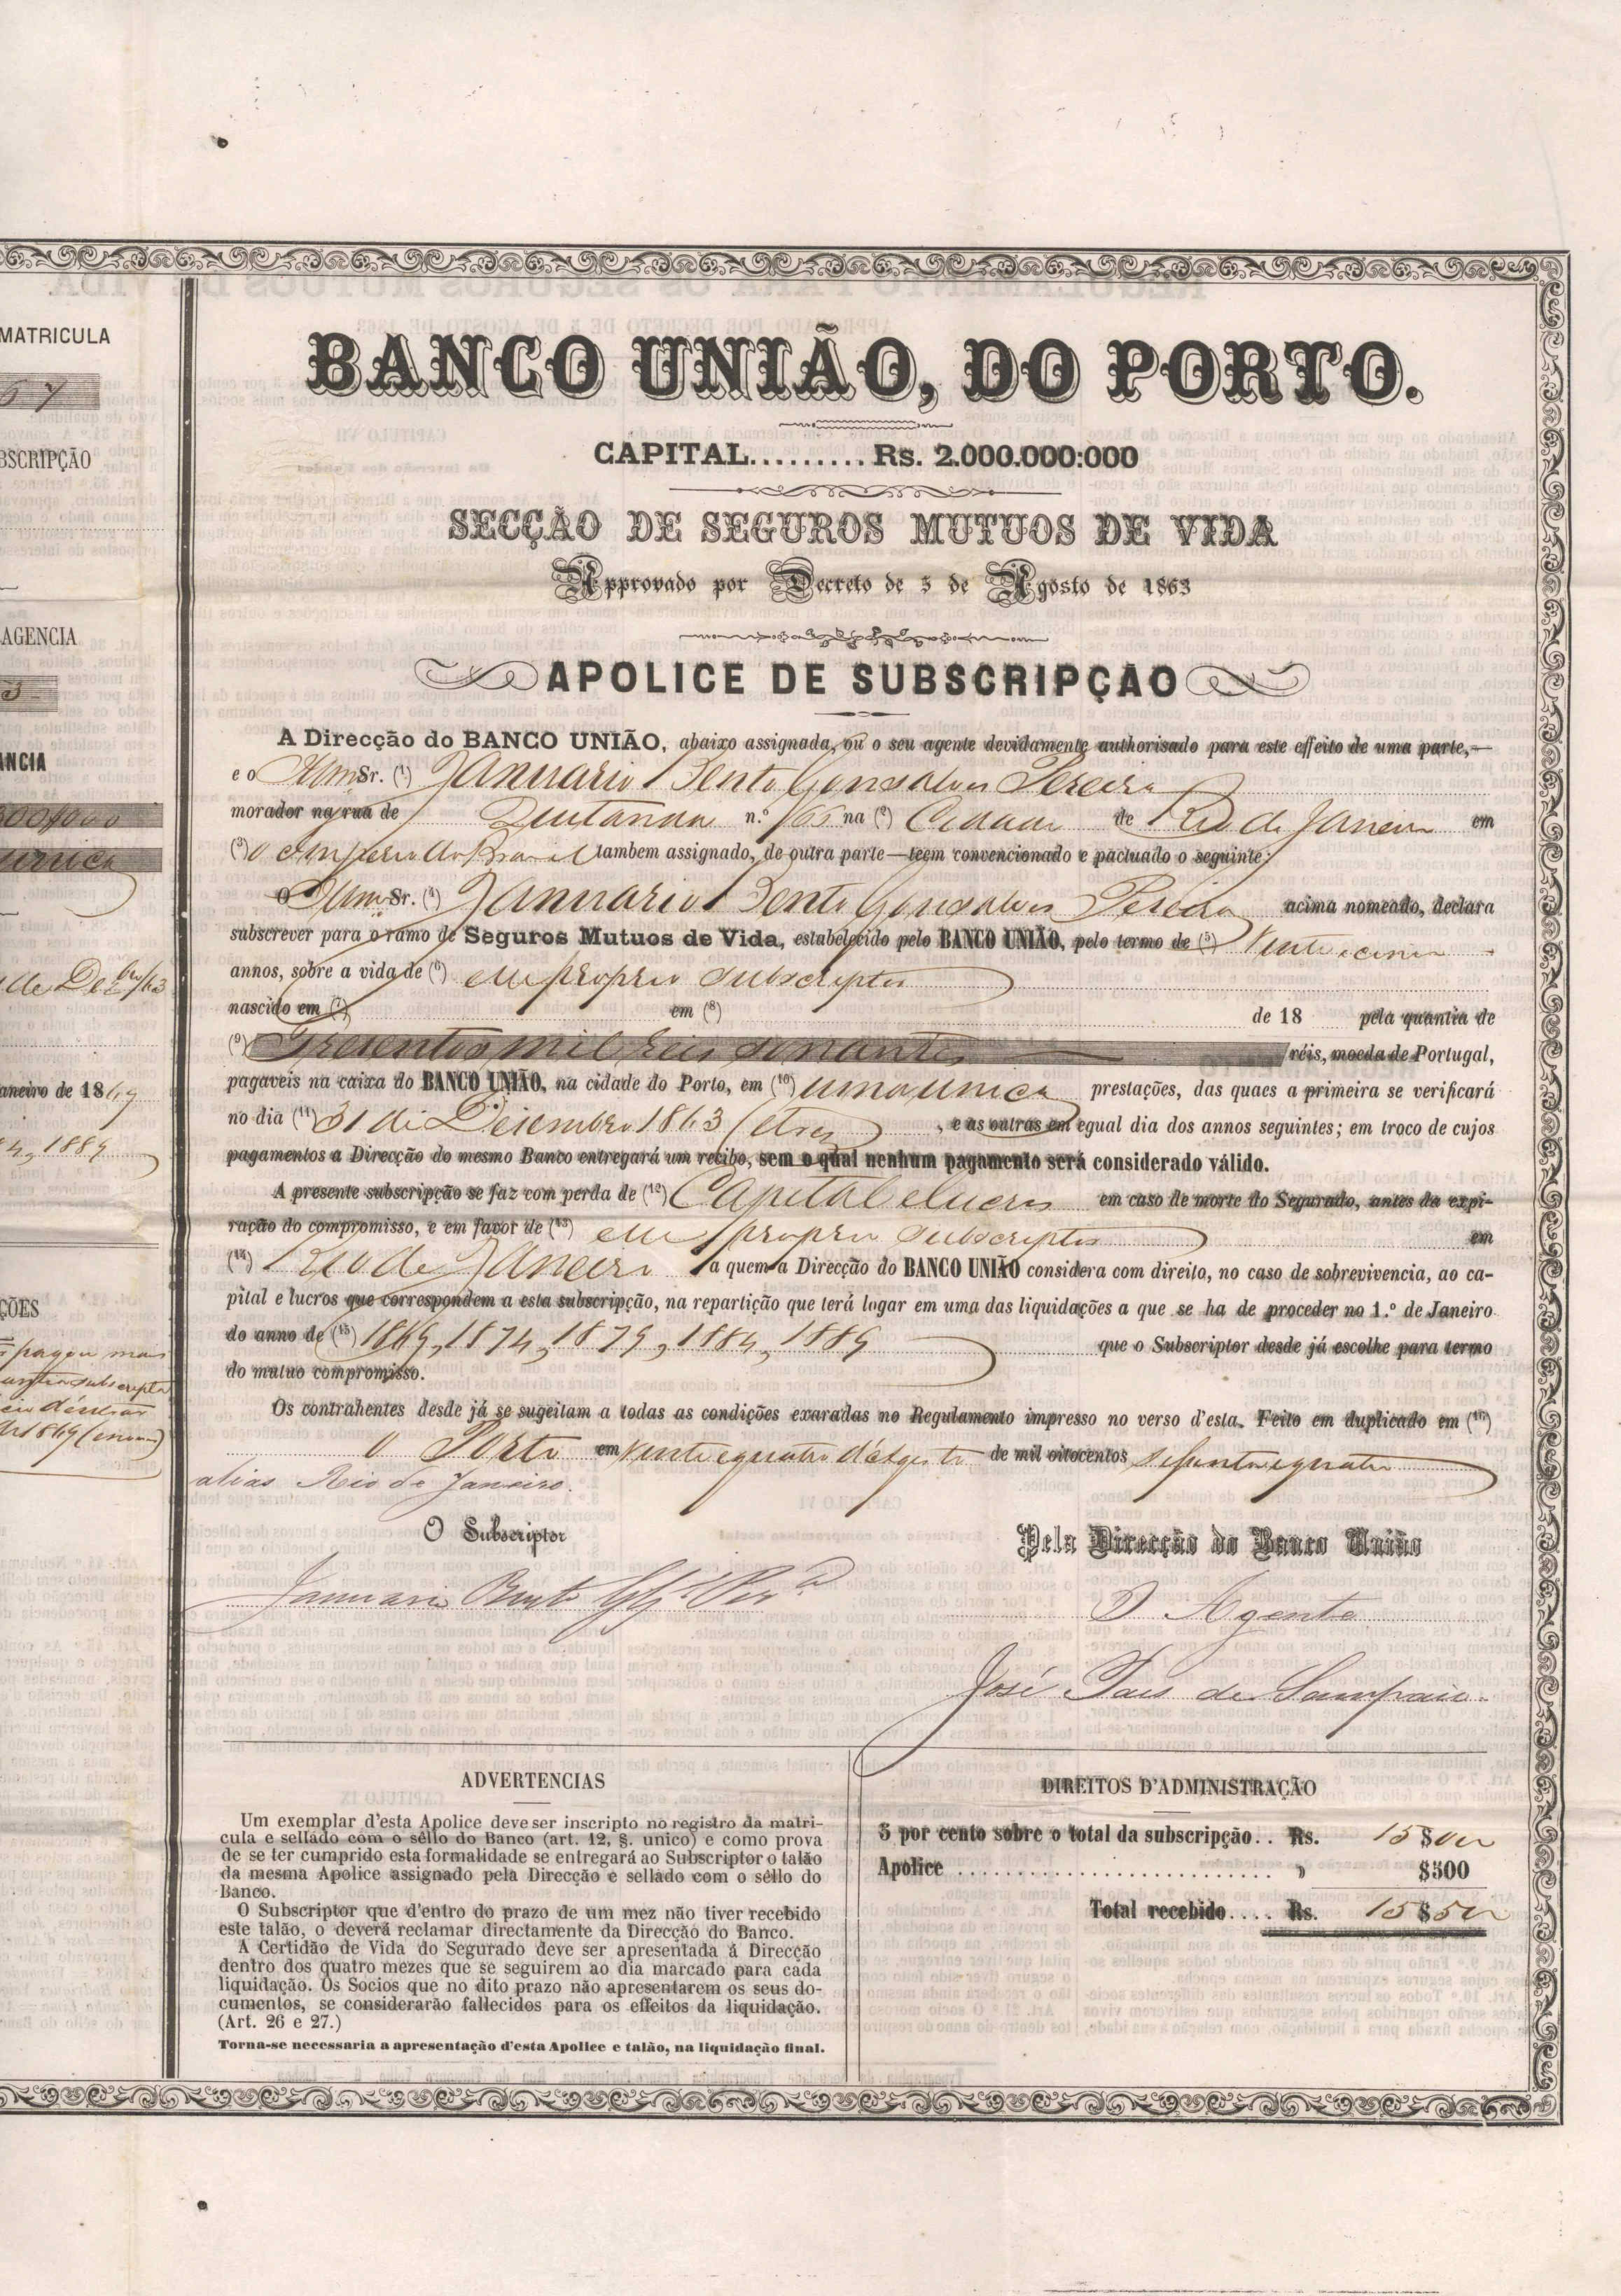 MATRICULA
67
BSCRIPÇÃO
AGENCIA
3
ANCIA
unica
de Dezbro/63
aneiro de 1869
84, 1889
ÇÕES
pagou mais
BANCO UNIÃO, DO PORTO.
CAPITAL.......... Rs. 2.000.000:000
SECÇÃO DE SEGUROS MUTUOS DE VIDA
Approvado por Decreto de 5 de Agosto de 1863
APOLICE DE SUBSCRIPÇAO
A Direcção do BANCO UNIÃO, abaixo assignada, ou o seu agente devidamente authorisado para este effeito de uma parte,—
e o Illmo Sr. (1) Januario Bento Gonsalves Pereira
morador na rua de Quitanda n.º 165 na (2) Cidade de Rio de Janeiro em
(3) o imperio do Brasil tambem assignado, de outra parte—teem convencionado e pactuado o seguinte:
O Illmo Sr. (4) Januario Bento Gonsalves Pereira acima nomeado, declara
subscrever para o ramo de Seguros Mutuos de Vida, estabelecido pelo BANCO UNIÃO, pelo termo de (5) Vinte e cinco
annos, sobre a vida de (6) elle proprio subscriptor
nascido em (7) em (8) de 18 pela quantia de
(9) Tresentos mil reis sonantes réis, moeda de Portugal,
pagaveis na caixa do BANCO UNIÃO, na cidade do Porto, em (10) uma unica prestações, das quaes a primeira se verificará
no dia (11) 31 de Dezembro 1863 (etres) , e as outras em egual dia dos annos seguintes; em troco de cujos
pagamentos a Direcção do mesmo Banco entregará um recibo, sem o qual nenhum pagamento será considerado válido.
A presente subscripção se faz com perda de (12) Capital e lucros em caso de morte do Segurado, antes da expi-
ração do compromisso, e em favor de (13) elle proprio subscriptor em
(14) Rio de Janeiro a quem a Direcção do BANCO UNIÃO considera com direito, no caso de sobrevivencia, ao ca-
pital e lucros que correspondem a esta subscripção, na repartição que terá logar em uma das liquidações a que se ha de proceder no 1.º de Janeiro
do anno de (15) 1869, 1874, 1879, 1884, 1889 que o Subscriptor desde já escolhe para termo
do mutuo compromisso.
Os contrahentes desde já se sugeitam a todas as condições exaradas no Regulamento impresso no verso d'esta. Feito em duplicado em (16)
o Porto em vinte e quatro d'Agosto de mil oitocentos sessenta e quatro
alias Rio de Janeiro.
O Subscriptor
Januario Bento Glz Pera
Pela Direcção do Banco União
O Agente
José Pais de Sampaio.
ADVERTENCIAS
Um exemplar d'esta Apolice deve ser inscripto no registro da matri-
cula e sellado com o sêllo do Banco (art. 12, §. unico) e como prova
de se ter cumprido esta formalidade se entregará ao Subscriptor o talão
da mesma Apolice assignado pela Direcção e sellado com o sêllo do
Banco.
O Subscriptor que d'entro do prazo de um mez não tiver recebido
este talão, o deverá reclamar directamente da Direcção do Banco.
A Certidão de Vida do Segurado deve ser apresentada á Direcção
dentro dos quatro mezes que se seguirem ao dia marcado para cada
liquidação. Os Socios que no dito prazo não apresentarem os seus do-
cumentos, se considerarão fallecidos para os effeitos da liquidação.
(Art. 26 e 27.)
Torna-se necessaria a apresentação d'esta Apolice e talão, na liquidação final.
DIREITOS D'ADMINISTRAÇÃO
5 por cento sobre o total da subscripção.. Rs. 15$000
Apolice .............................. » $500
Total recebido.... Rs. 15$500